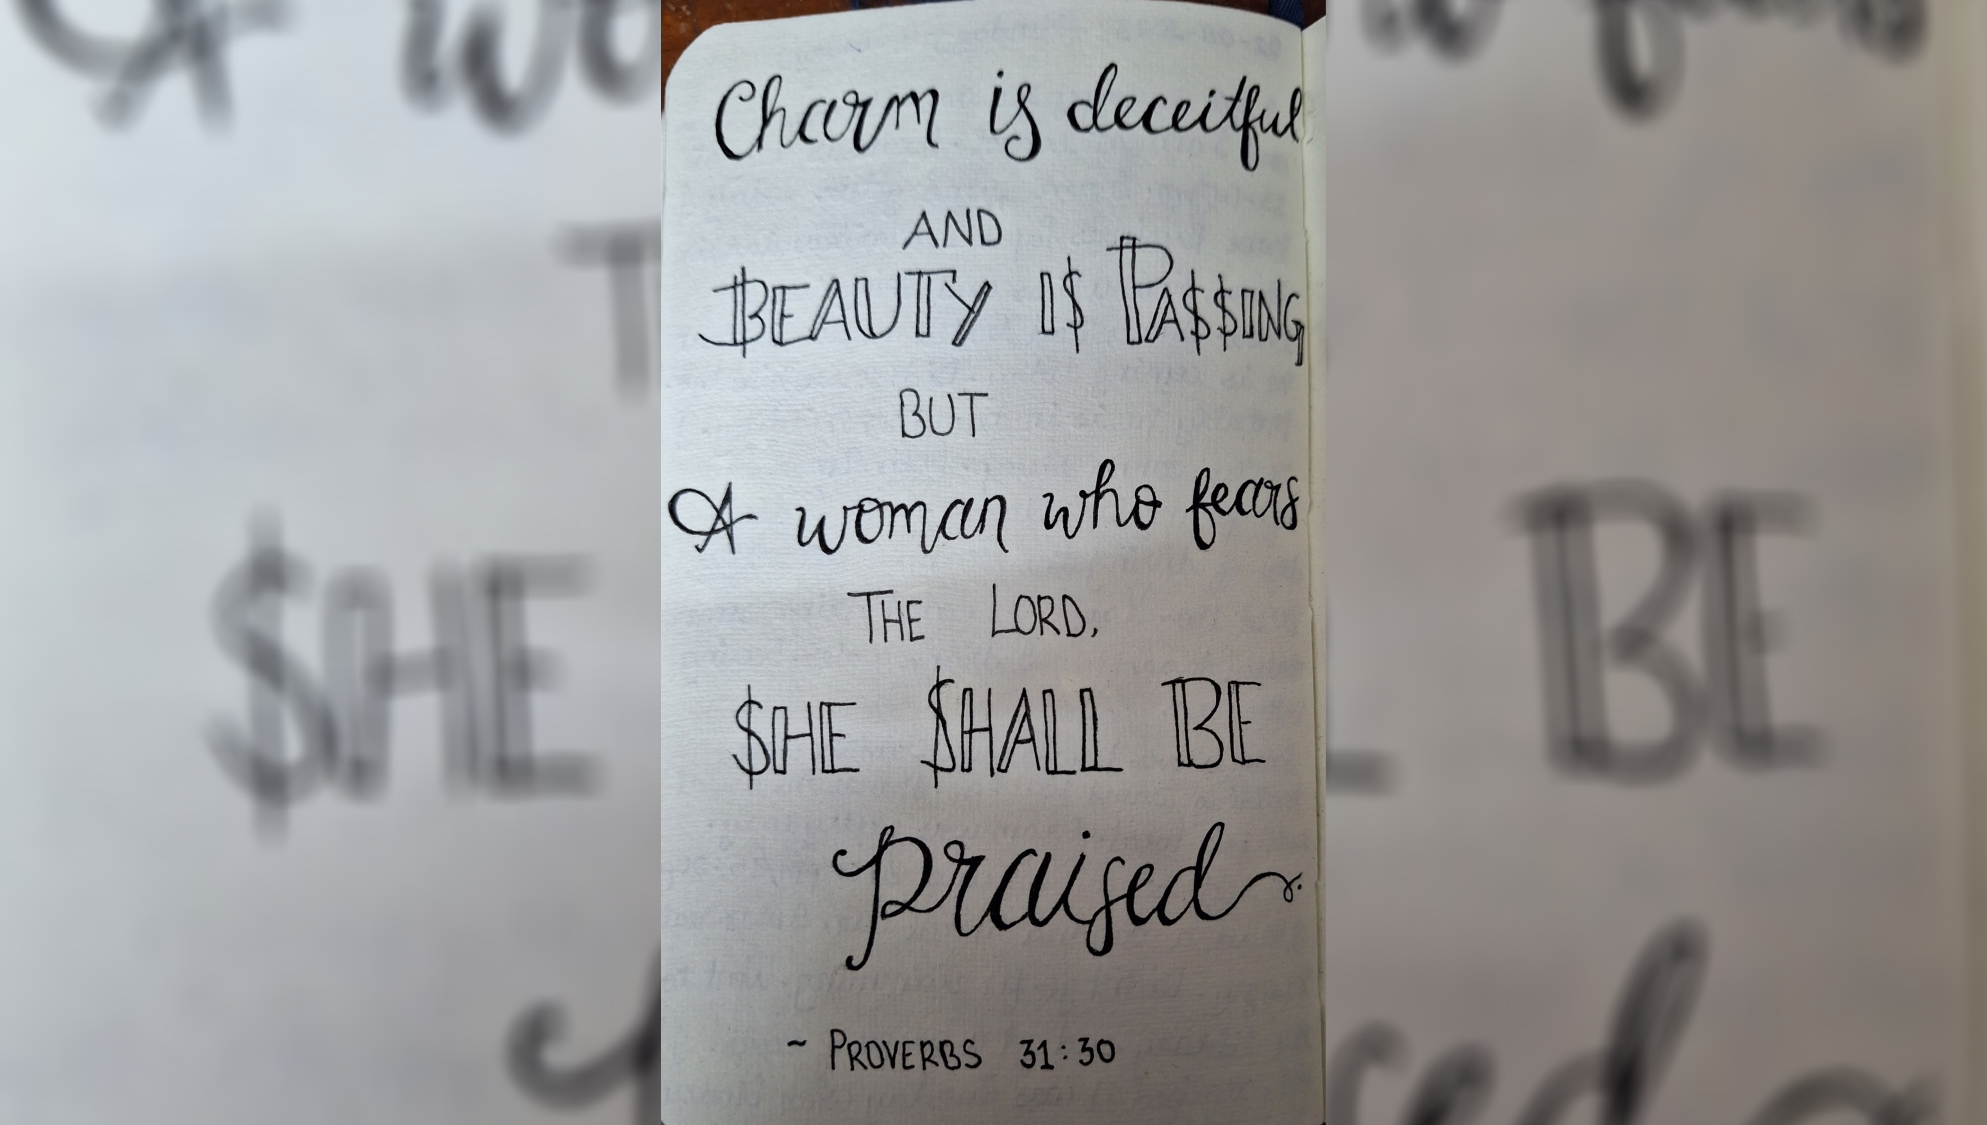 Charm is deceitful
AND
BEAUTY IS PASSING
BUT
A woman who fears
THE LORD,
SHE SHALL BE
praised.
~ PROVERBS 31:30